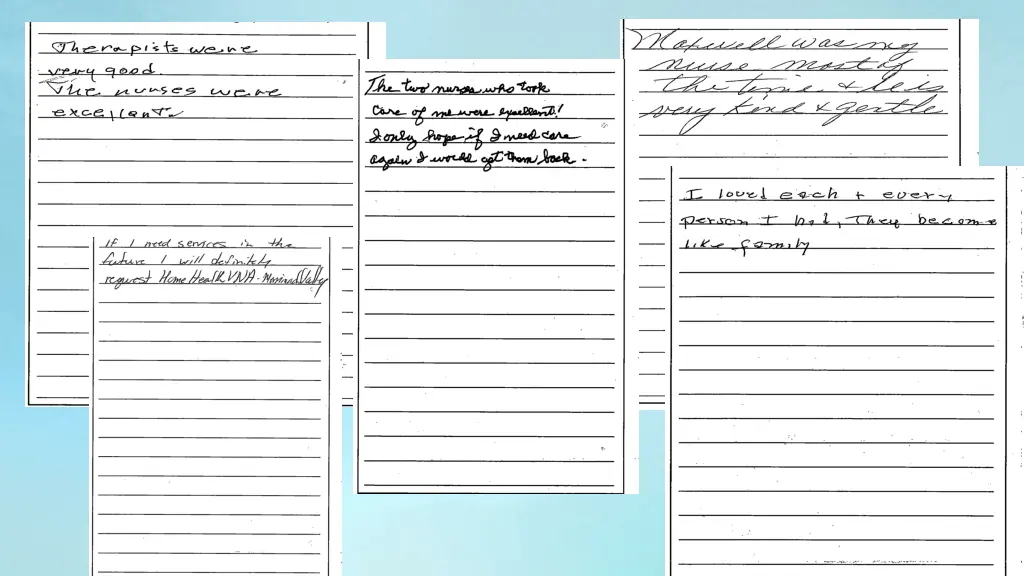 Therapists were
very good.
The nurses were
excellant.
If I need services in the
future I will definitely
request Home Health VNA-Merrimack Valley
The two nurses who took
care of me were excellent!
I only hope if I need care
again I would get them back.
Maxwell was my
nurse most of
the time & he is
very kind & gentle
I loved each + every
person I had, They become
like family